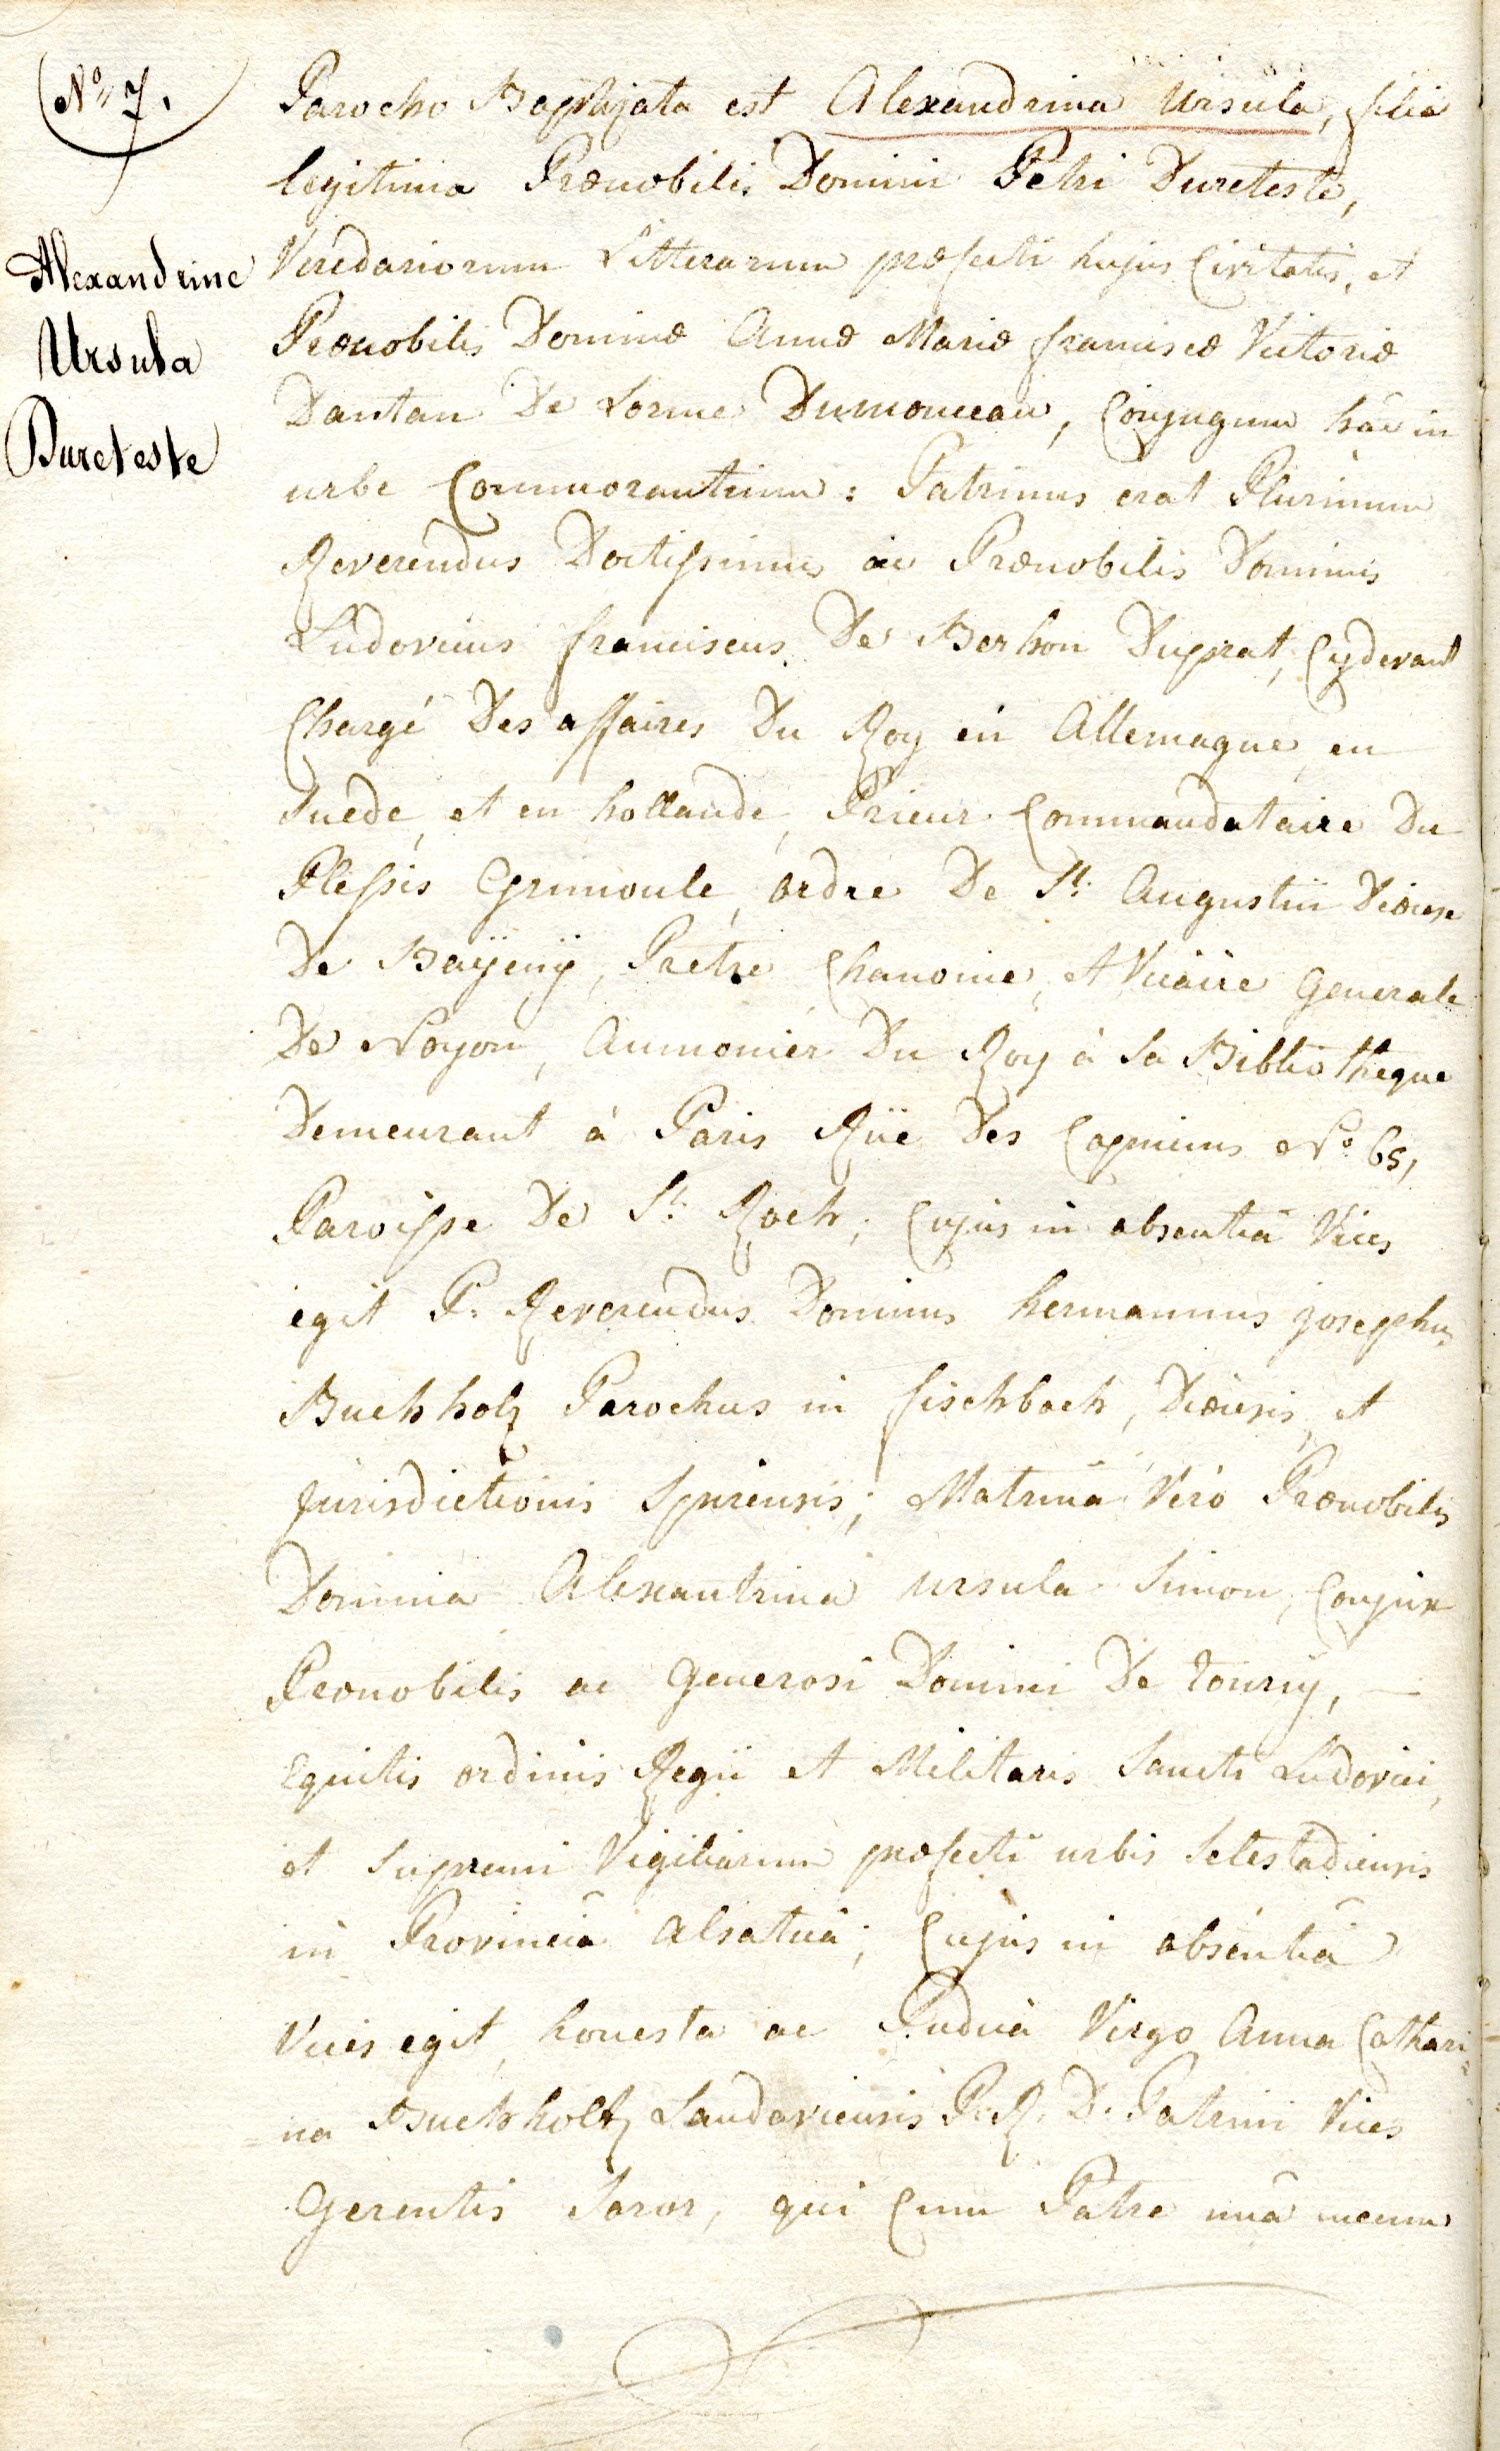 No 7.
Alexandrine
Ursula
Dureteste
Parocho Baptizata est Alexandrina Ursula, filia
legitima Prænobilis Domini Petri Dureteste,
Veredariorum Litterarum præfecti hujus Civitatis, et
Prænobilis Dominæ Annæ Mariæ franciscæ Victoriæ
Dantan De Lorme Dumonceau, Conjugum hâc in
urbe Commorantium: Patrinus erat Plurimum
Reverendus Doctissimus ac Prænobilis Dominus
Ludovicus franciscus De Berhon Duprat, Cydevant
Chargé Des affaires Du Roy en Allemagne, en
Suede, et en hollande, Prieur Commandataire Du
Plessis Grimoule, ordre De St. Augustin Diœcese
De Bayeuy, Pretre Chanoine, et Vicaire Generale
De Noyon, Aumonier Du Roy à Sa Bibliotheque
Demeurant à Paris Rüe Des Capucins No 65,
Paroisse De St. Roch; Cujus in absentiâ Vices
egit P. Reverendus Dominus hermannus josephus
Buchholz Parochus in fischbach, Diœcesis, et
Jurisdictionis Spirensis; Matrina Verò Prænobilis
Domina Alexantrina Ursula Simon, Conjux
Prænobilis ac Generosi Domini De tourny, —
Equitis ordinis Regii et Militaris Sancti Ludovici,
et Supremi Vigiliarum præfecti urbis Selestadiensis
in Provinciâ Alsatiâ; Cujus in absentiâ
Vices egit, honesta ac Pudica Virgo Anna Cathari
na Buchholtz Landaviensis P. R. D. Patrini Vices
Gerentis Soror, qui Cum Patre unâ mecum